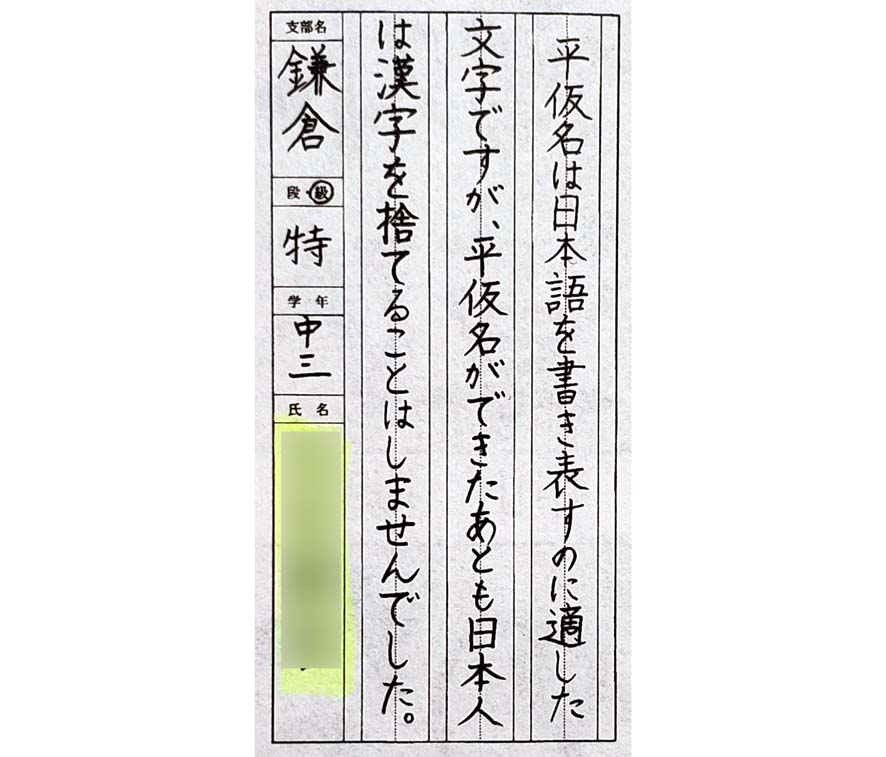 平仮名は日本語を書き表すのに適した
文字ですが、平仮名ができたあとも日本人
は漢字を捨てることはしませんでした。
支部名
鎌倉
段・級
特
学年
中三
氏名